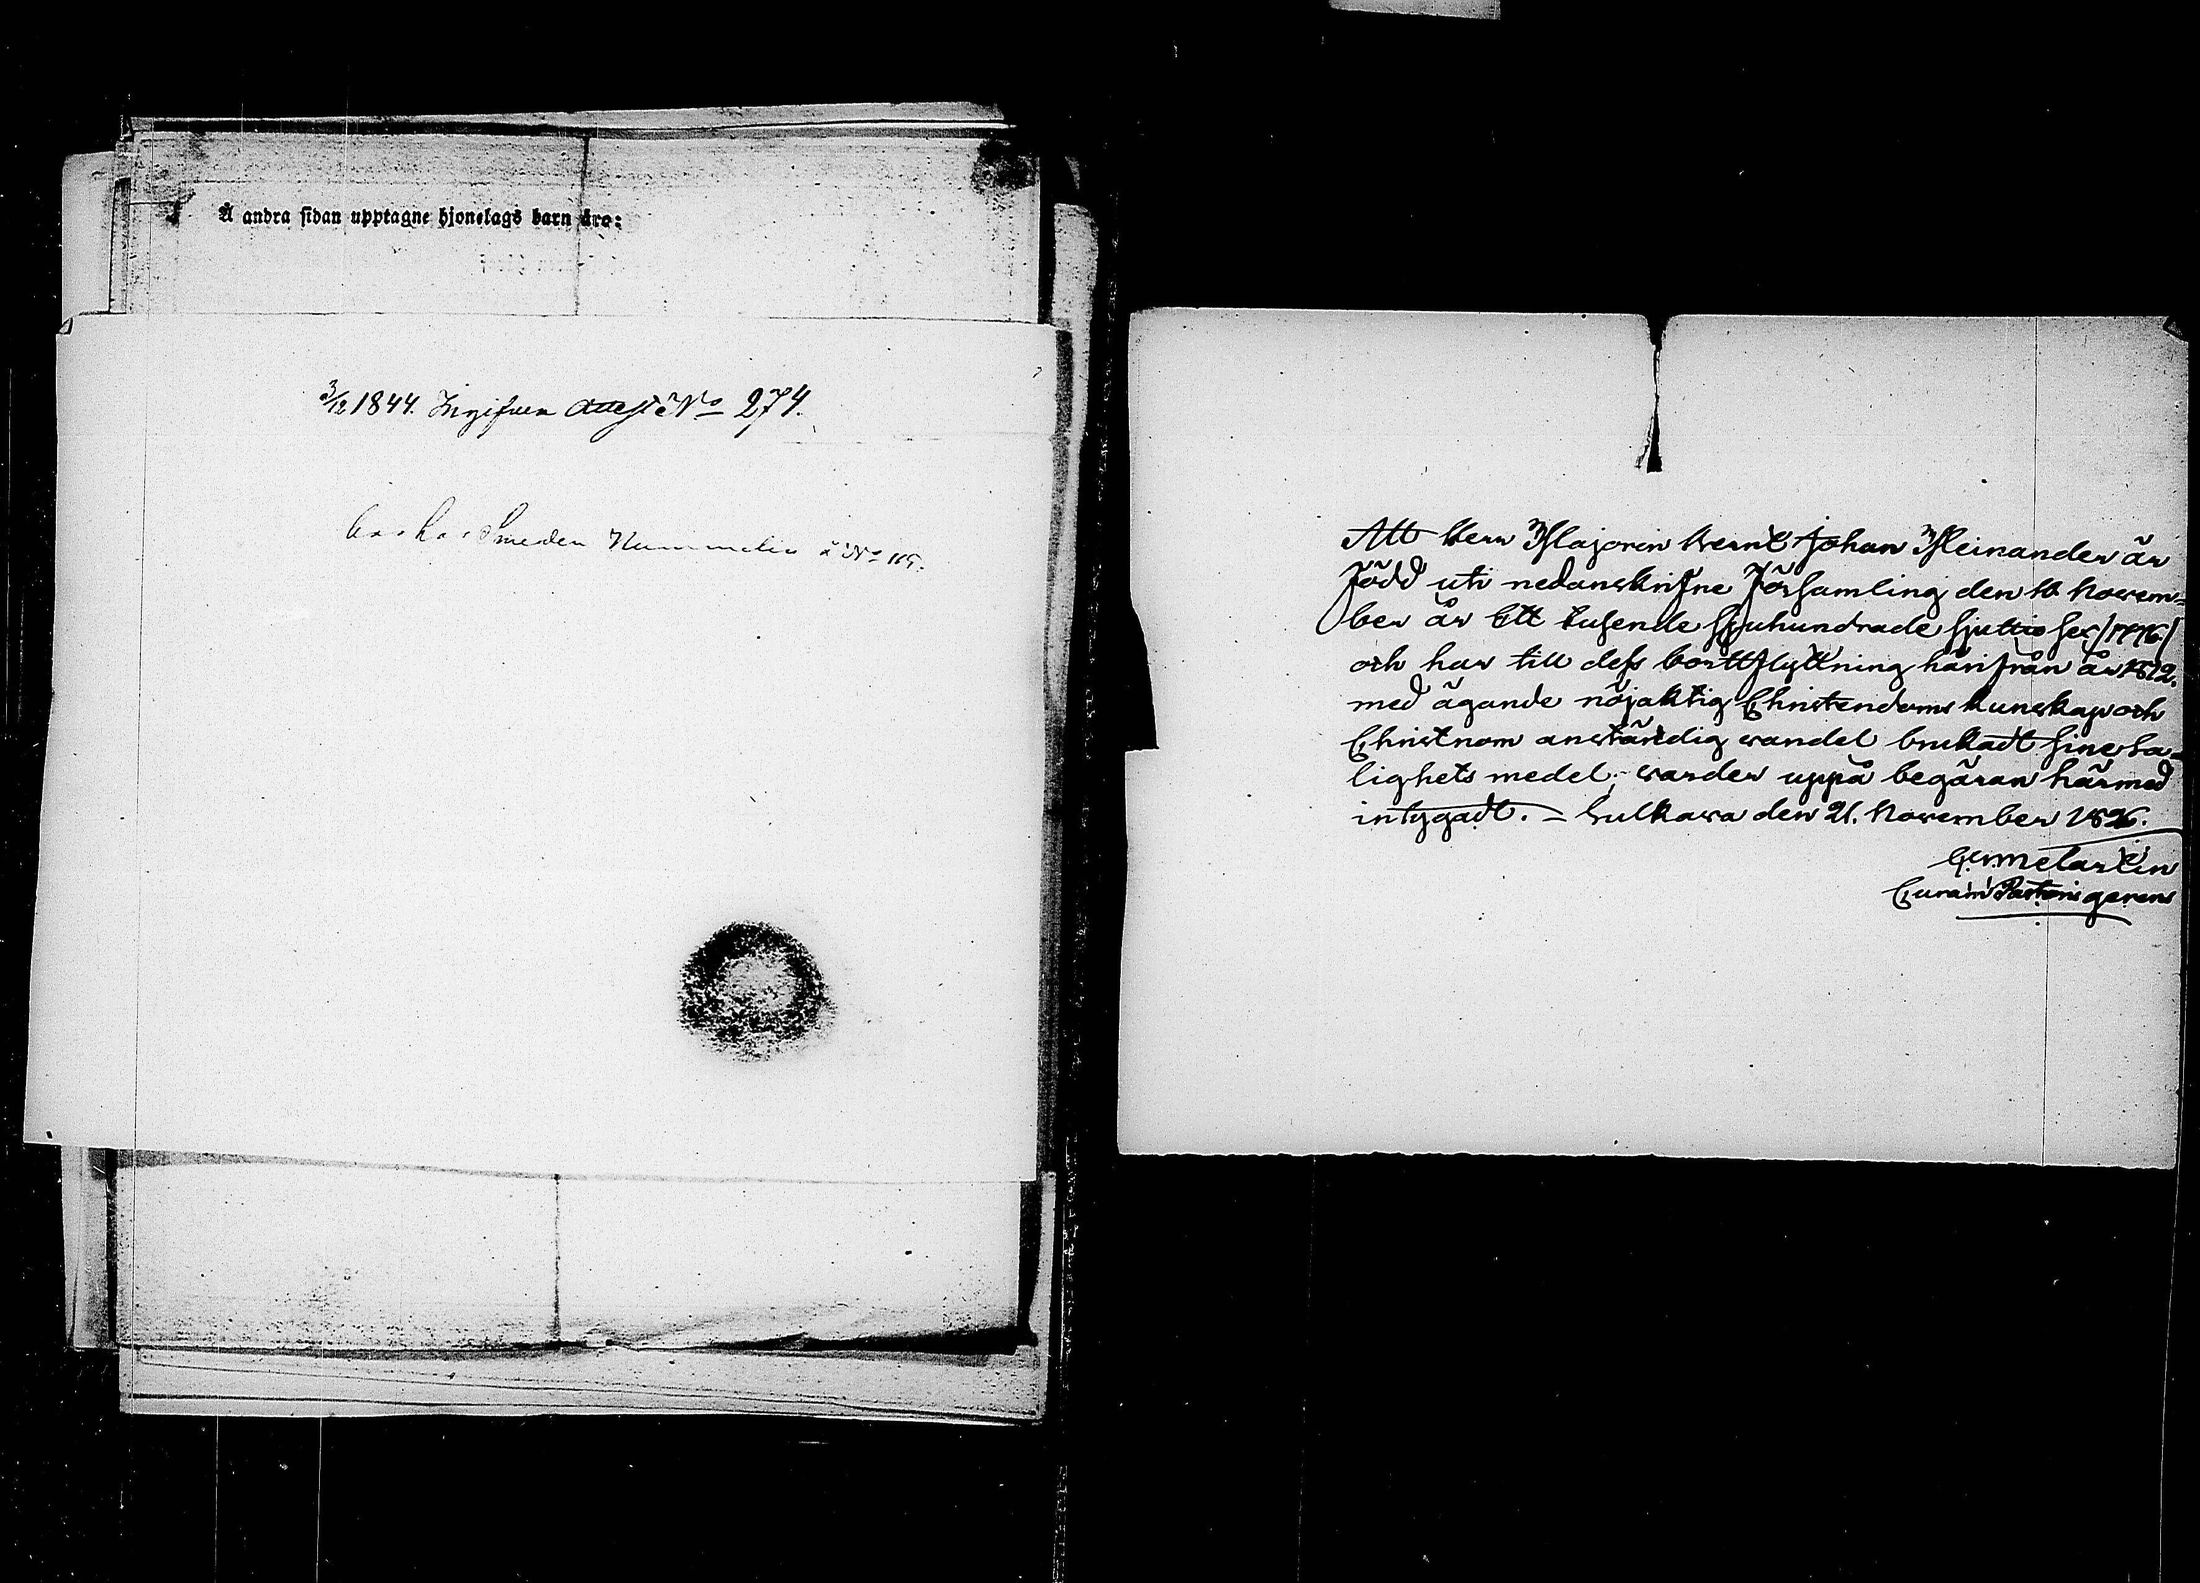 Å andra sidan upptagne hjonelags barn äro:
3/12 1844. Ingifven Attest No 274.
Smeden Nummelin å No 115.
Att Herr Majoren Bernt Johan Meinander är
född uti nedanskrifne Församling den 10 Novem=
ber år Ett tusende sjuhundrade sjuttio sex /1776/
och har till dess borttflyttning härifrån år 1812.
med ägande nöjaktig Christendoms kunskap och
Christnom anständig vandel brukadt sine sa=
lighets medel; varder uppå begäran härmed
intygadt. = Sulkava den 21. November 1826.
Molartin
Curam Pastoris gerens